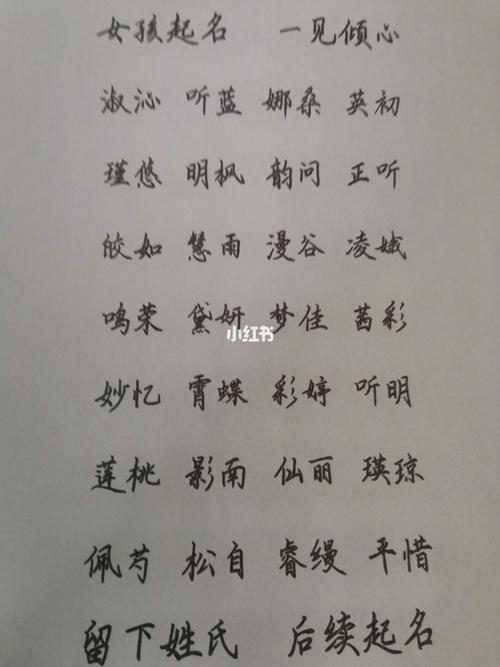 女孩起名 一见倾心
淑沁 听蓝 娜桑 英初
瑾悠 明枫 韵问 正听
皎如 慧雨 漫谷 凌娥
鸣荣 黛妍 梦佳 茜彩
小红书
妙忆 霄蝶 彩婷 听明
莲桃 影南 仙丽 瑛琼
佩芍 松自 睿缦 平惜
留下姓氏 后续起名